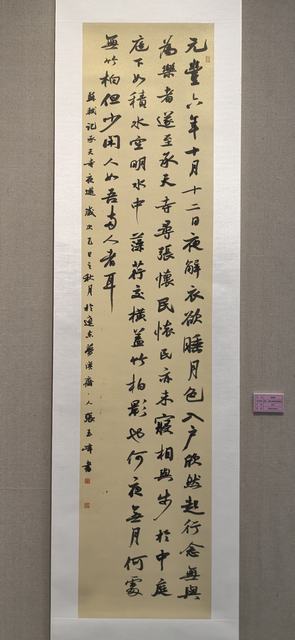 元豐六年十月十二日夜解衣欲睡月色入户欣然起行念無與
為樂者遂至承天寺尋張懷民懷民亦未寢相與步於中庭
庭下如積水空明水中藻荇交橫蓋竹柏影也何夜無月何處
無竹柏但少閑人如吾兩人者耳
蘇軾記承天寺夜遊 歲次乙巳之秋月於遼東 張玉峰書